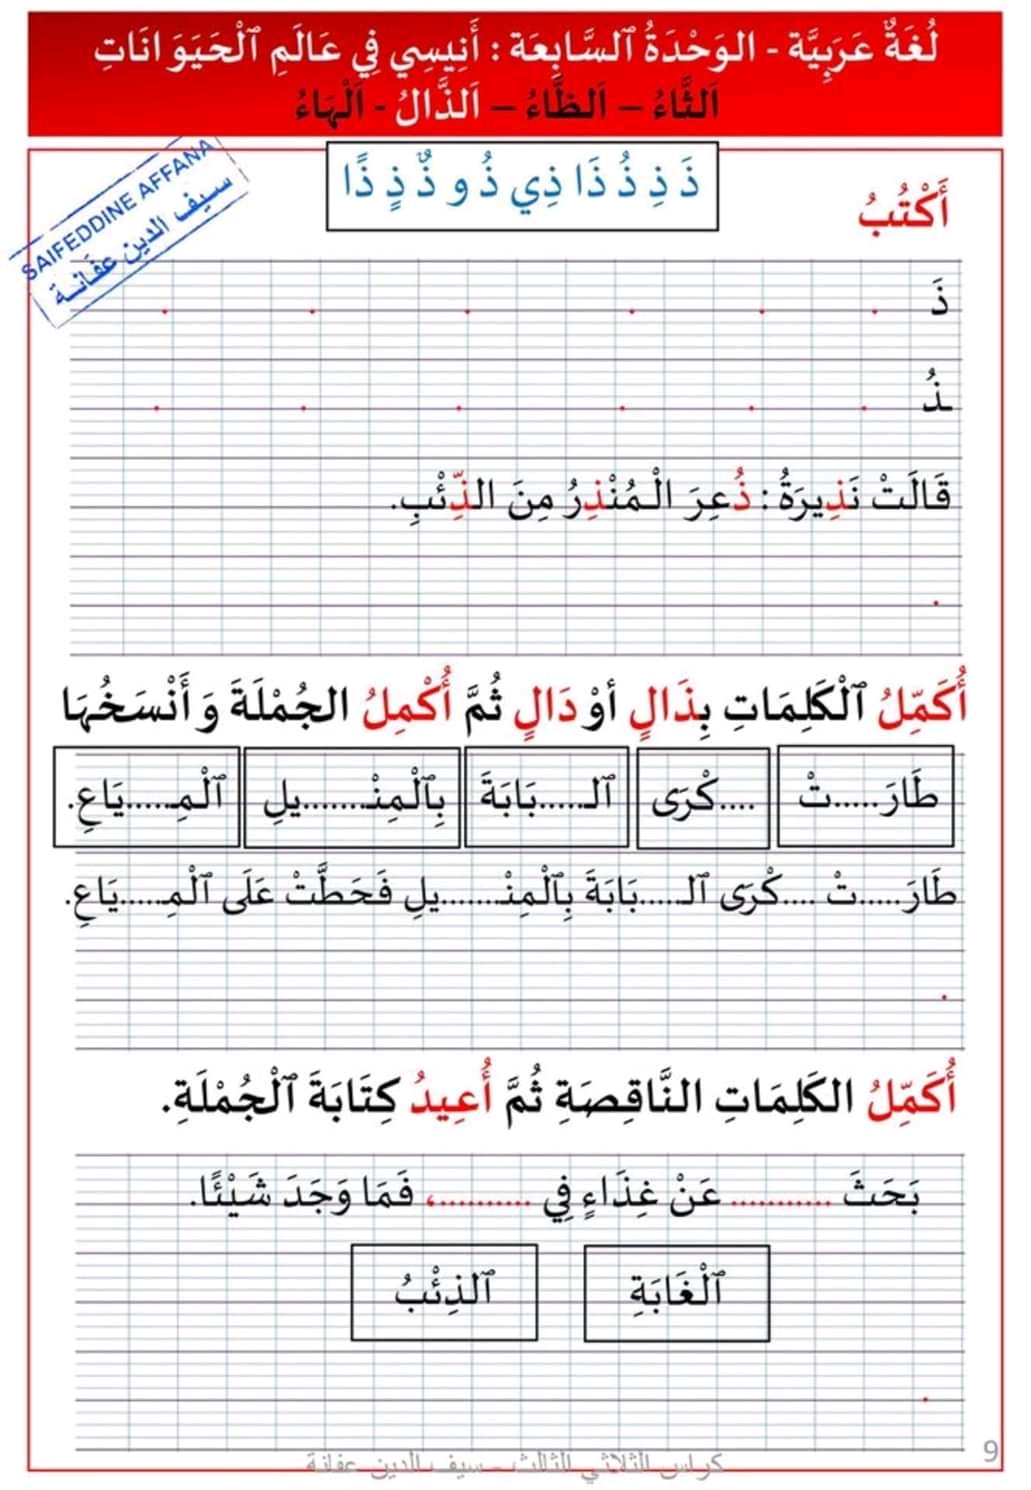 لُغَةٌ عَرَبِيَّة - الوَحْدَةُ ٱلسَّابِعَة : أَنِيسِي فِي عَالَمِ ٱلْحَيَوَانَاتِ
اَلثَّاءُ – اَلظَّاءُ – اَلذَّالُ - اَلْهَاءُ
SAIFEDDINE AFFANA
سيف الدين عفّانة
ذَ ذِ ذُ ذَا ذِي ذُو ذٌ ذٍ ذًا
أَكْتُبُ
ذَ
ـذُ
قَالَتْ نَذِيرَةُ : ذُعِرَ الْمُنْذِرُ مِنَ الذِّئْبِ.
أُكَمِّلُ ٱلْكَلِمَاتِ بِذَالٍ أوْ دَالٍ ثُمَّ أُكْمِلُ الجُمْلَةَ وَ أَنْسَخُهَا
طَارَ.....تْ ....كْرَى ٱلـ.....بَابَةَ بِٱلْمِنْـ.......يلِ ٱلْمِـ.....يَاعِ.
طَارَ.....تْ ....كْرَى ٱلـ.....بَابَةَ بِٱلْمِنْـ.......يلِ فَحَطَّتْ عَلَى ٱلْمِـ.....يَاعِ.
أُكَمِّلُ الكَلِمَاتِ النَّاقِصَةِ ثُمَّ أُعِيدُ كِتَابَةَ ٱلْجُمْلَةِ.
بَحَثَ ........... عَنْ غِذَاءٍ فِي ..........، فَمَا وَجَدَ شَيْئًا.
ٱلْغَابَةِ ٱلذِئْبُ
كراس الثلاثي الثالث – سيف الدين عفانة
9